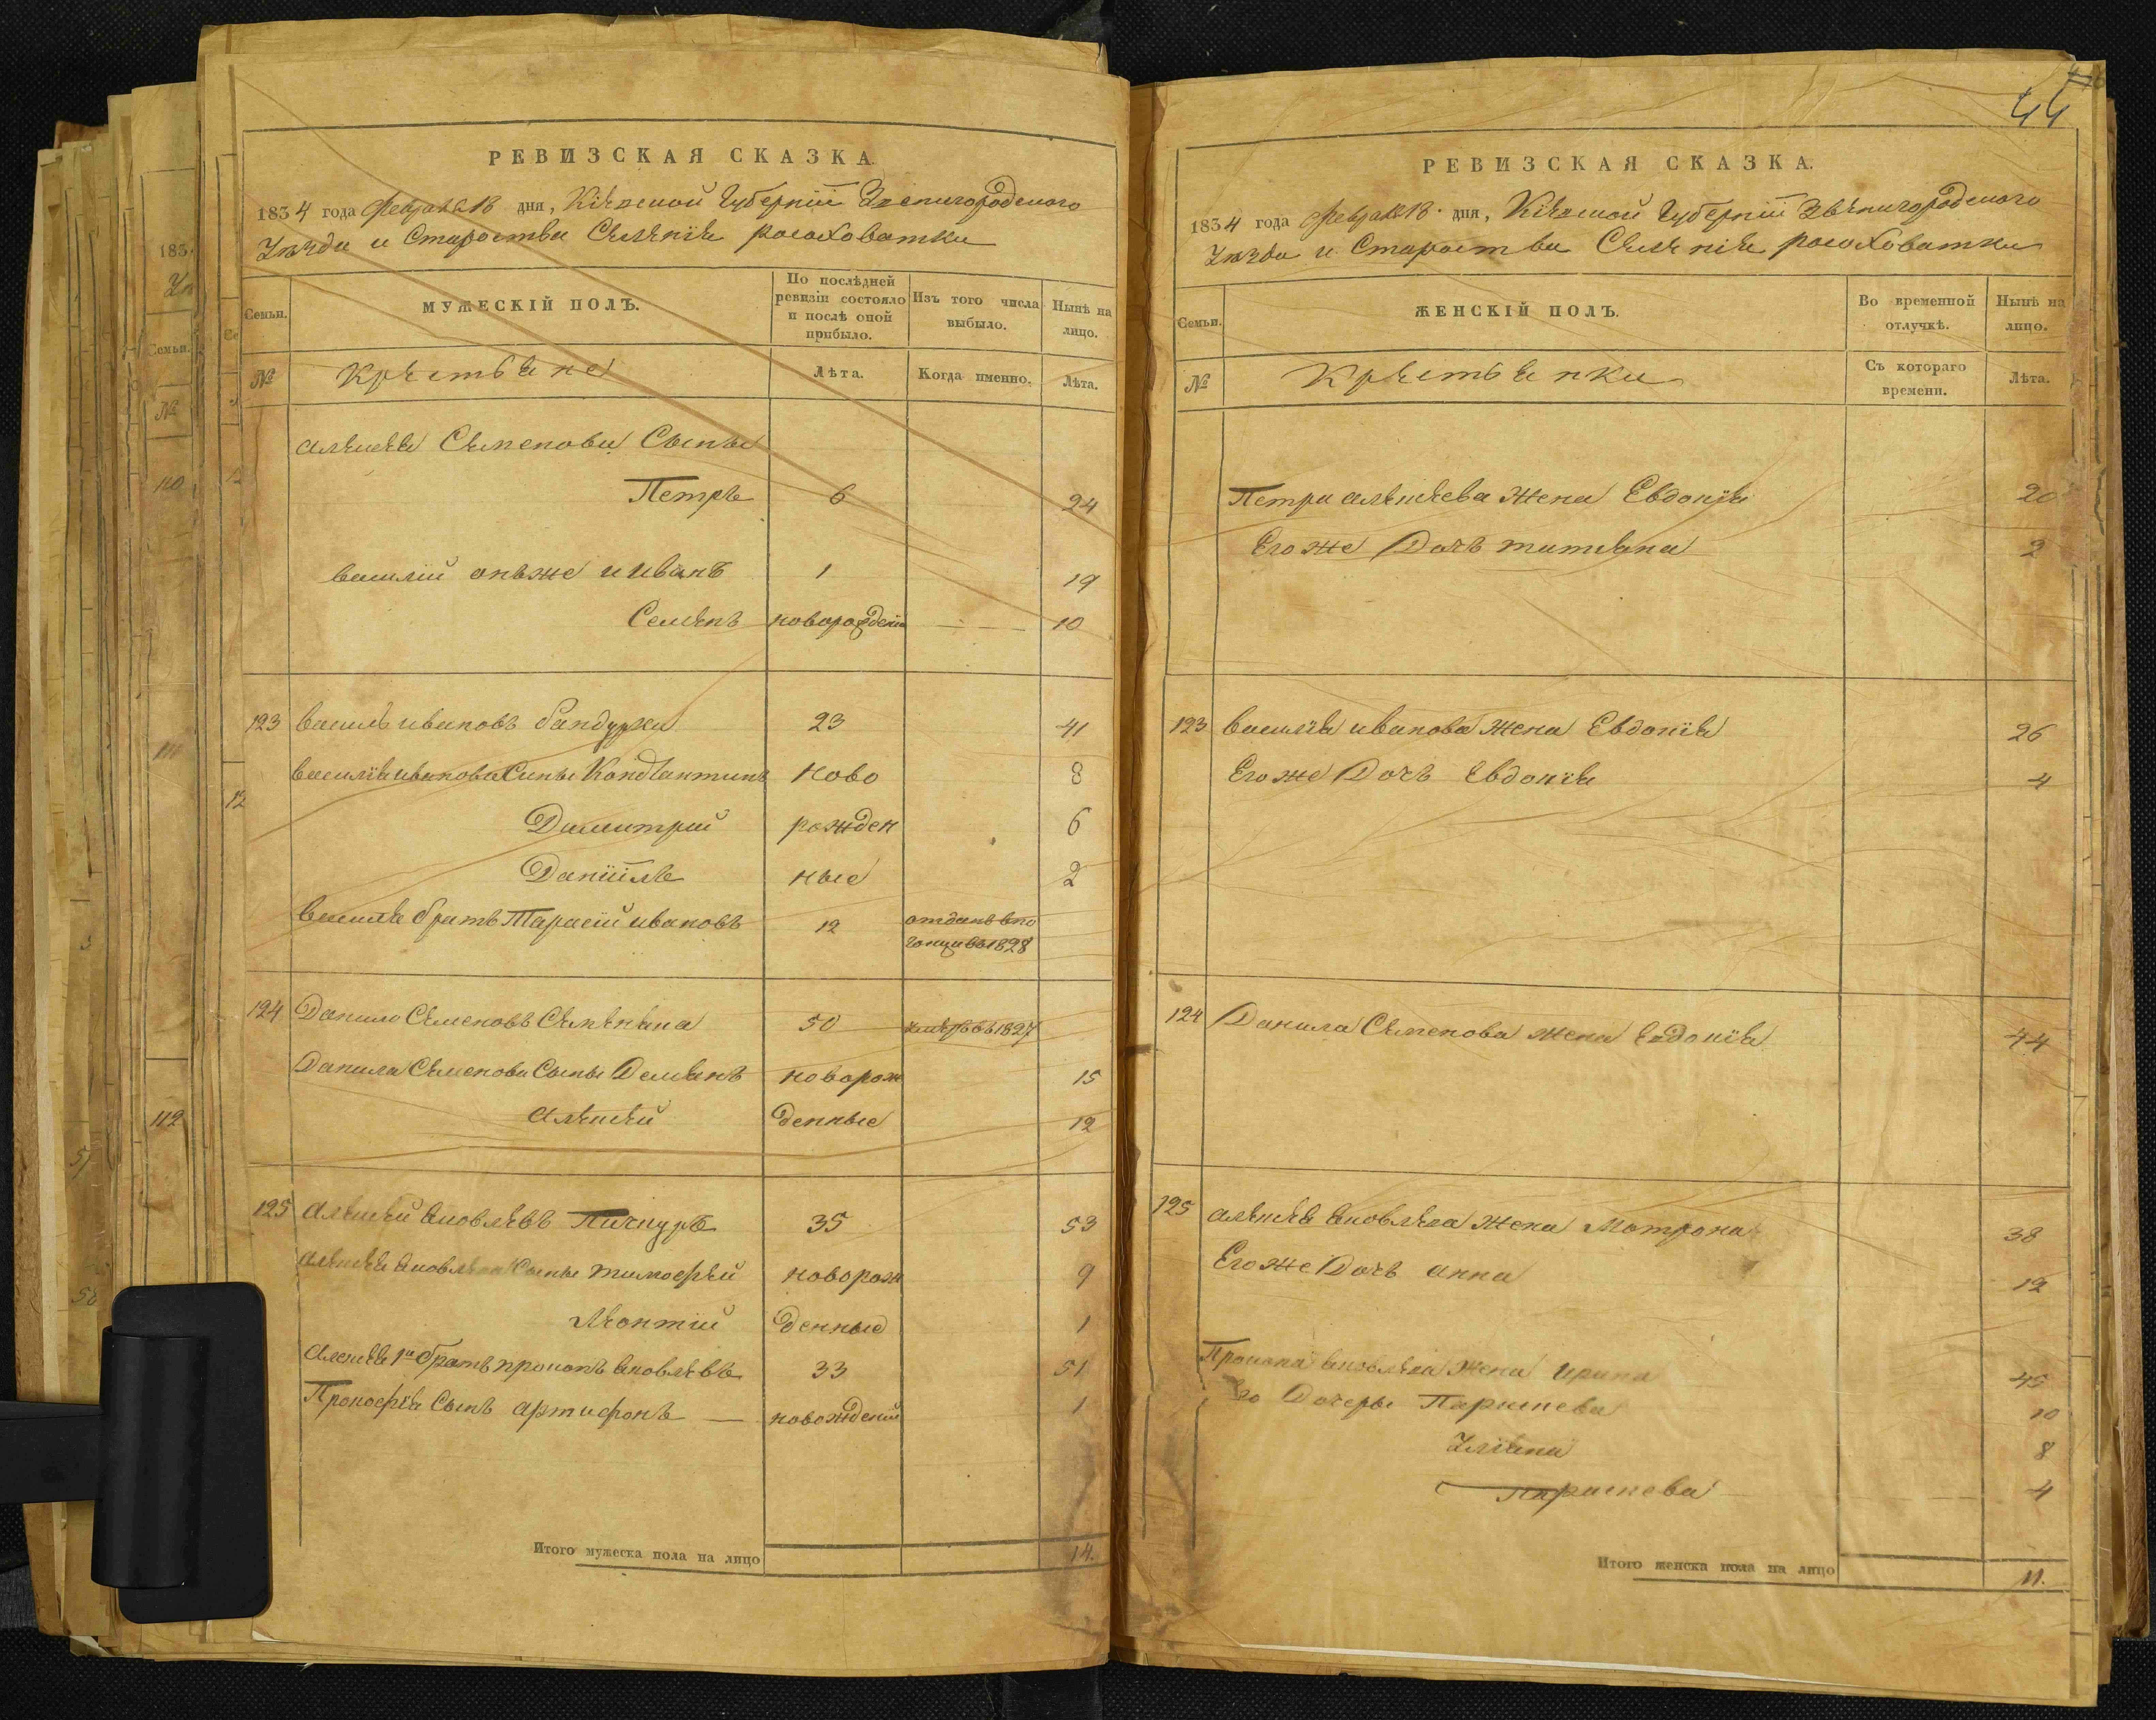 РЕВИЗСКАЯ СКАЗКА.
1834 года Февраля 18 дня, Кіевской Губерніи Звенигородского
Уѣзда и Староства Селенія росоховатки
Семьи. МУЖЕСКІЙ ПОЛЪ. По послѣдней ревизіи состояло и послѣ оной прибыло. Изъ того числа выбыло. Нынѣ на лицо.
№ Крестьяне Лѣта. Когда именно. Лѣта.
алексея Семенова Сыны
Петръ 6 24
василій онъже и иванъ 1 19
Семенъ новорожденій 10
123 василь ивановъ бандурка 23 41
василія иванова Сыны Константинъ ново 8
Димитрій рожден 6
Даніилъ ные 2
василя братъ Тарасій ивановъ 12 отданъ в по
гонцы въ 1828
124 Данило Семеновъ Семеняка 50 умеръ въ 1827
Данила Семенова Сыны Демянъ новорож 15
алексей денные 12
125 алексей яковлевъ Пичкуръ 35 53
алексея яковлева Сыны тимофей новорож 9
Леонтій денные 1
алексея 1й братъ прокопъ яковлевъ 33 51
Прокофія Сынъ артифонъ новождений 1
Итого мужеска пола на лицо 14.
44
РЕВИЗСКАЯ СКАЗКА.
1834 года Февраля 18 дня, Кіевской Губерніи Звѣнигородского
Уѣзда и Староства Селенія росоховатки
Семьи. ЖЕНСКІЙ ПОЛЪ. Во временной отлучкѣ. Нынѣ на лицо.
№ Крестьянки Съ котораго времени. Лѣта.
Петра алексеева жена Евдокія 20
Его же Дочъ татяна 2
123 василія иванова жена Евдокія 26
Его же Дочъ Евдокія 4
124 Данила Семенова жена Евдокія 44
125 алексея яковлева жена Мотрона 38
Его же Дочъ анна 12
Прокопа яковлева жена ирина 45
Его Дочеры Параскева 10
Уліяна 8
Параскева 4
Итого женска пола на лицо 11.